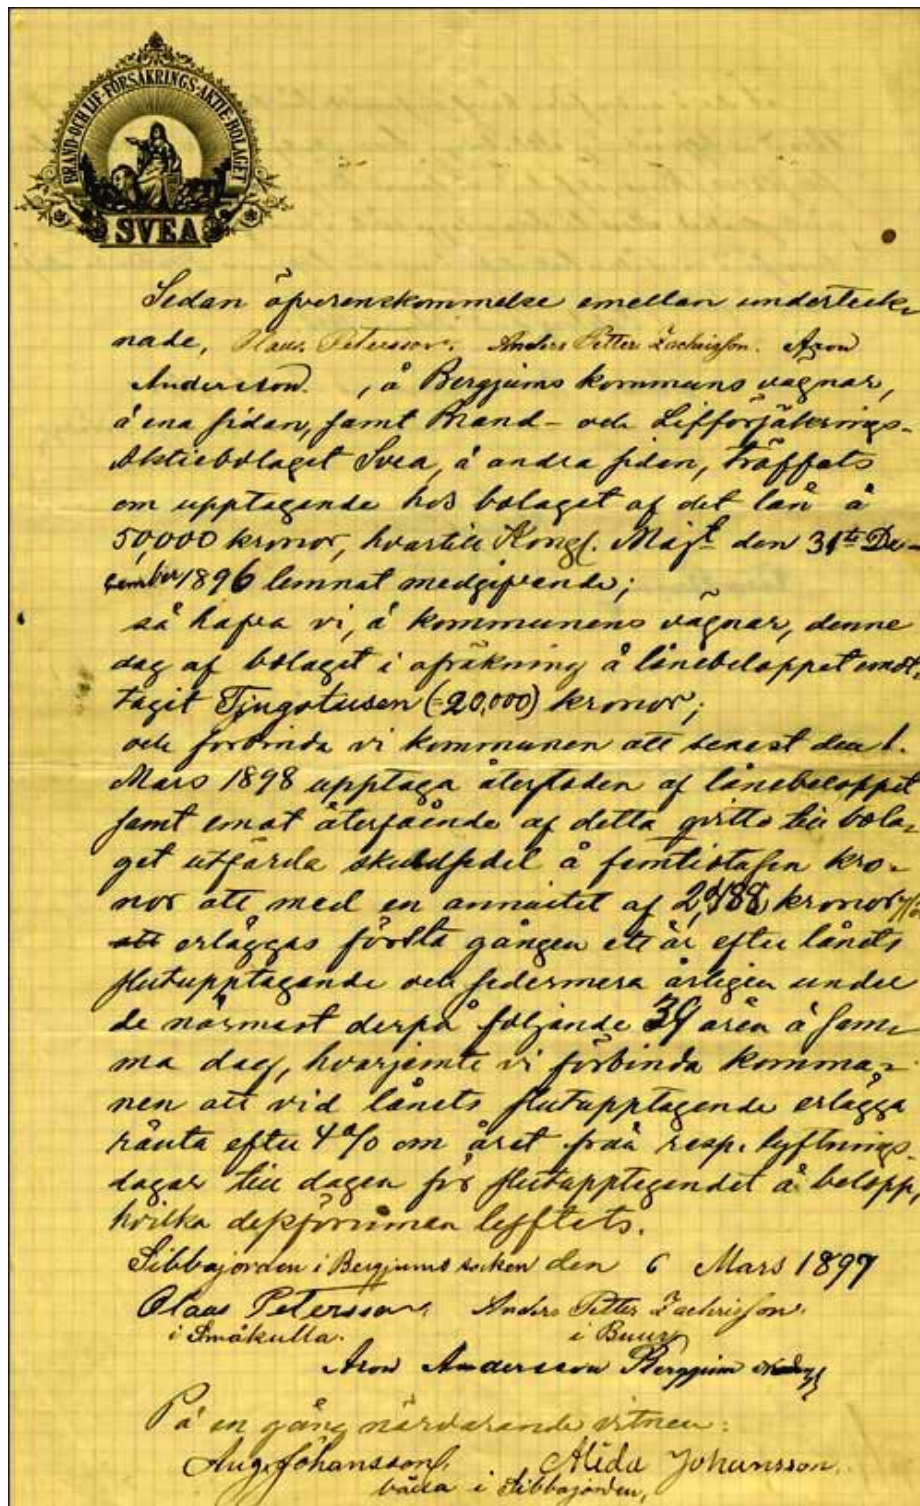 BRAND-OCH LIF-FÖRSÄKRINGS-AKTIE-BOLAGET
SVEA
Sedan öfverenskommelse emellan underteck-
nade, Olaus Petersson, Anders Petter Zachrisson. Aron
Andersson, å Bergjums kommuns vägnar,
å ena sidan, samt Brand- och Lifförsäkrings-
Aktiebolaget Svea, å andra sidan, träffats
om upptagande hos bolaget af det lån å
50,000 kronor, hvartill Kongl. Majt den 31te De-
cember 1896 lemnat medgifvande;
så hafva vi, å kommunens vägnar, denne
dag af bolaget i afräkning å lånebeloppet emot-
tagit Tjugotusen (=20,000) kronor;
och förbinda vi kommunen att senast den 1.
Mars 1898 upptaga återstoden af lånebeloppet
samt emot återfående af detta qvitto till bola-
get utfärda skuldsedel å femtiotusen kro-
nor att med en annuitet af kronor
att erläggas första gången ett år efter lånets
slutupptagande och sedermera årligen under
de närmast derpå följande 39 åren å sam-
ma dag, hvarjemte vi förbinda kommu-
nen att vid lånets slutupptagande erlägga
ränta efter 4% om året från resp. lyftnings-
dagar till dagen för slutupptagandet å belopp,
hvilka dessförinnan lyftets.
Sibbajorden i Bergjums socken den 6 Mars 1897
Olaus Petersson, Anders Petter Zachrisson.
i Småkulla. i Buur
Aron Andersson Bergjum
På en gång närvarande vitnen:
Aug. Johansson, Alida Johansson,
båda i Sibbajorden,